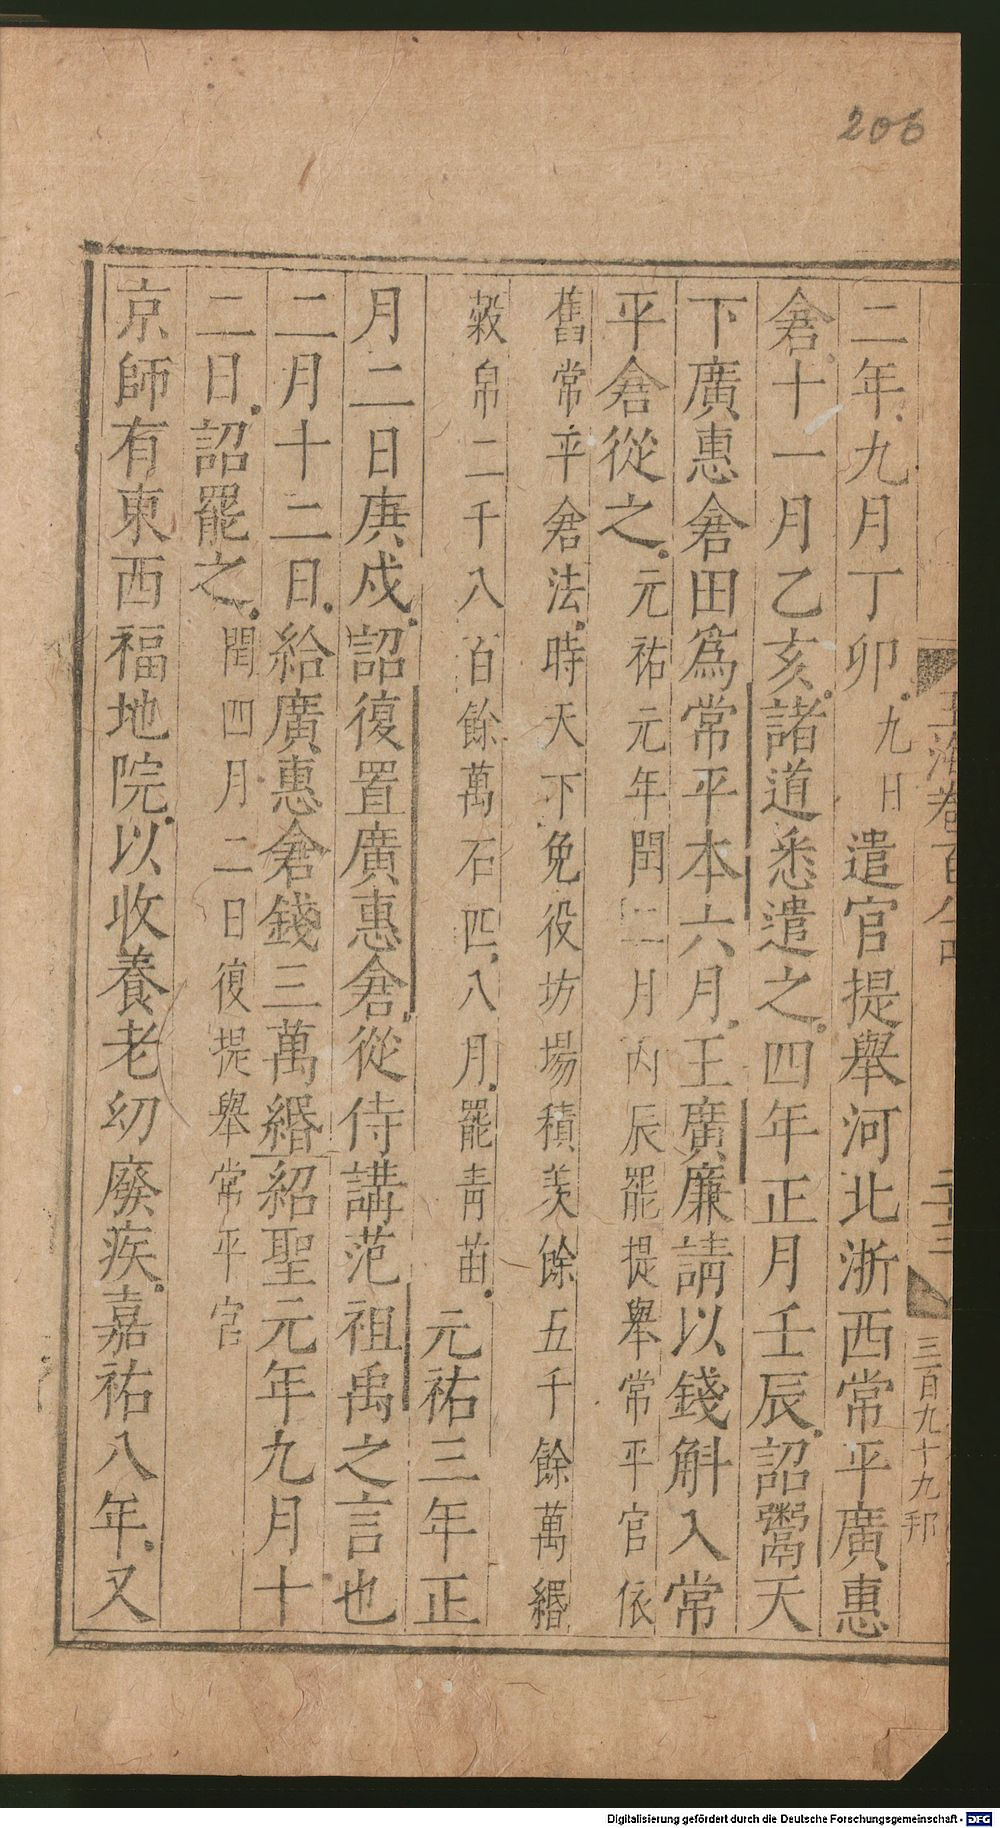 206
玉海卷百八
二十三
三百九十九
二年九月丁卯九日遣官提舉河北浙西常平廣惠
倉十一月乙亥諸道悉遣之四年正月壬辰詔鬻天
下廣惠倉田爲常平本六月王廣廉請以錢斛入常
平倉從之元祐元年閏二月丙辰罷提舉常平官依
舊常平倉法時天下免役坊場積羨餘五千餘萬緡
穀帛二千八百餘萬石匹八月罷青苗元祐三年正
月二日庚戌詔復置廣惠倉從侍講范祖禹之言也
二月十二日給廣惠倉錢三萬緡紹聖元年九月十
二日詔罷之閏四月二日復提舉常平官
京師有東西福地院以收養老幼廢疾嘉祐八年又
Digitalisierung gefördert durch die Deutsche Forschungsgemeinschaft - DFG